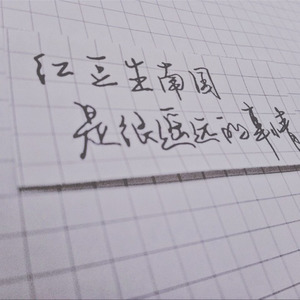 红豆生南国
是很遥远的事情